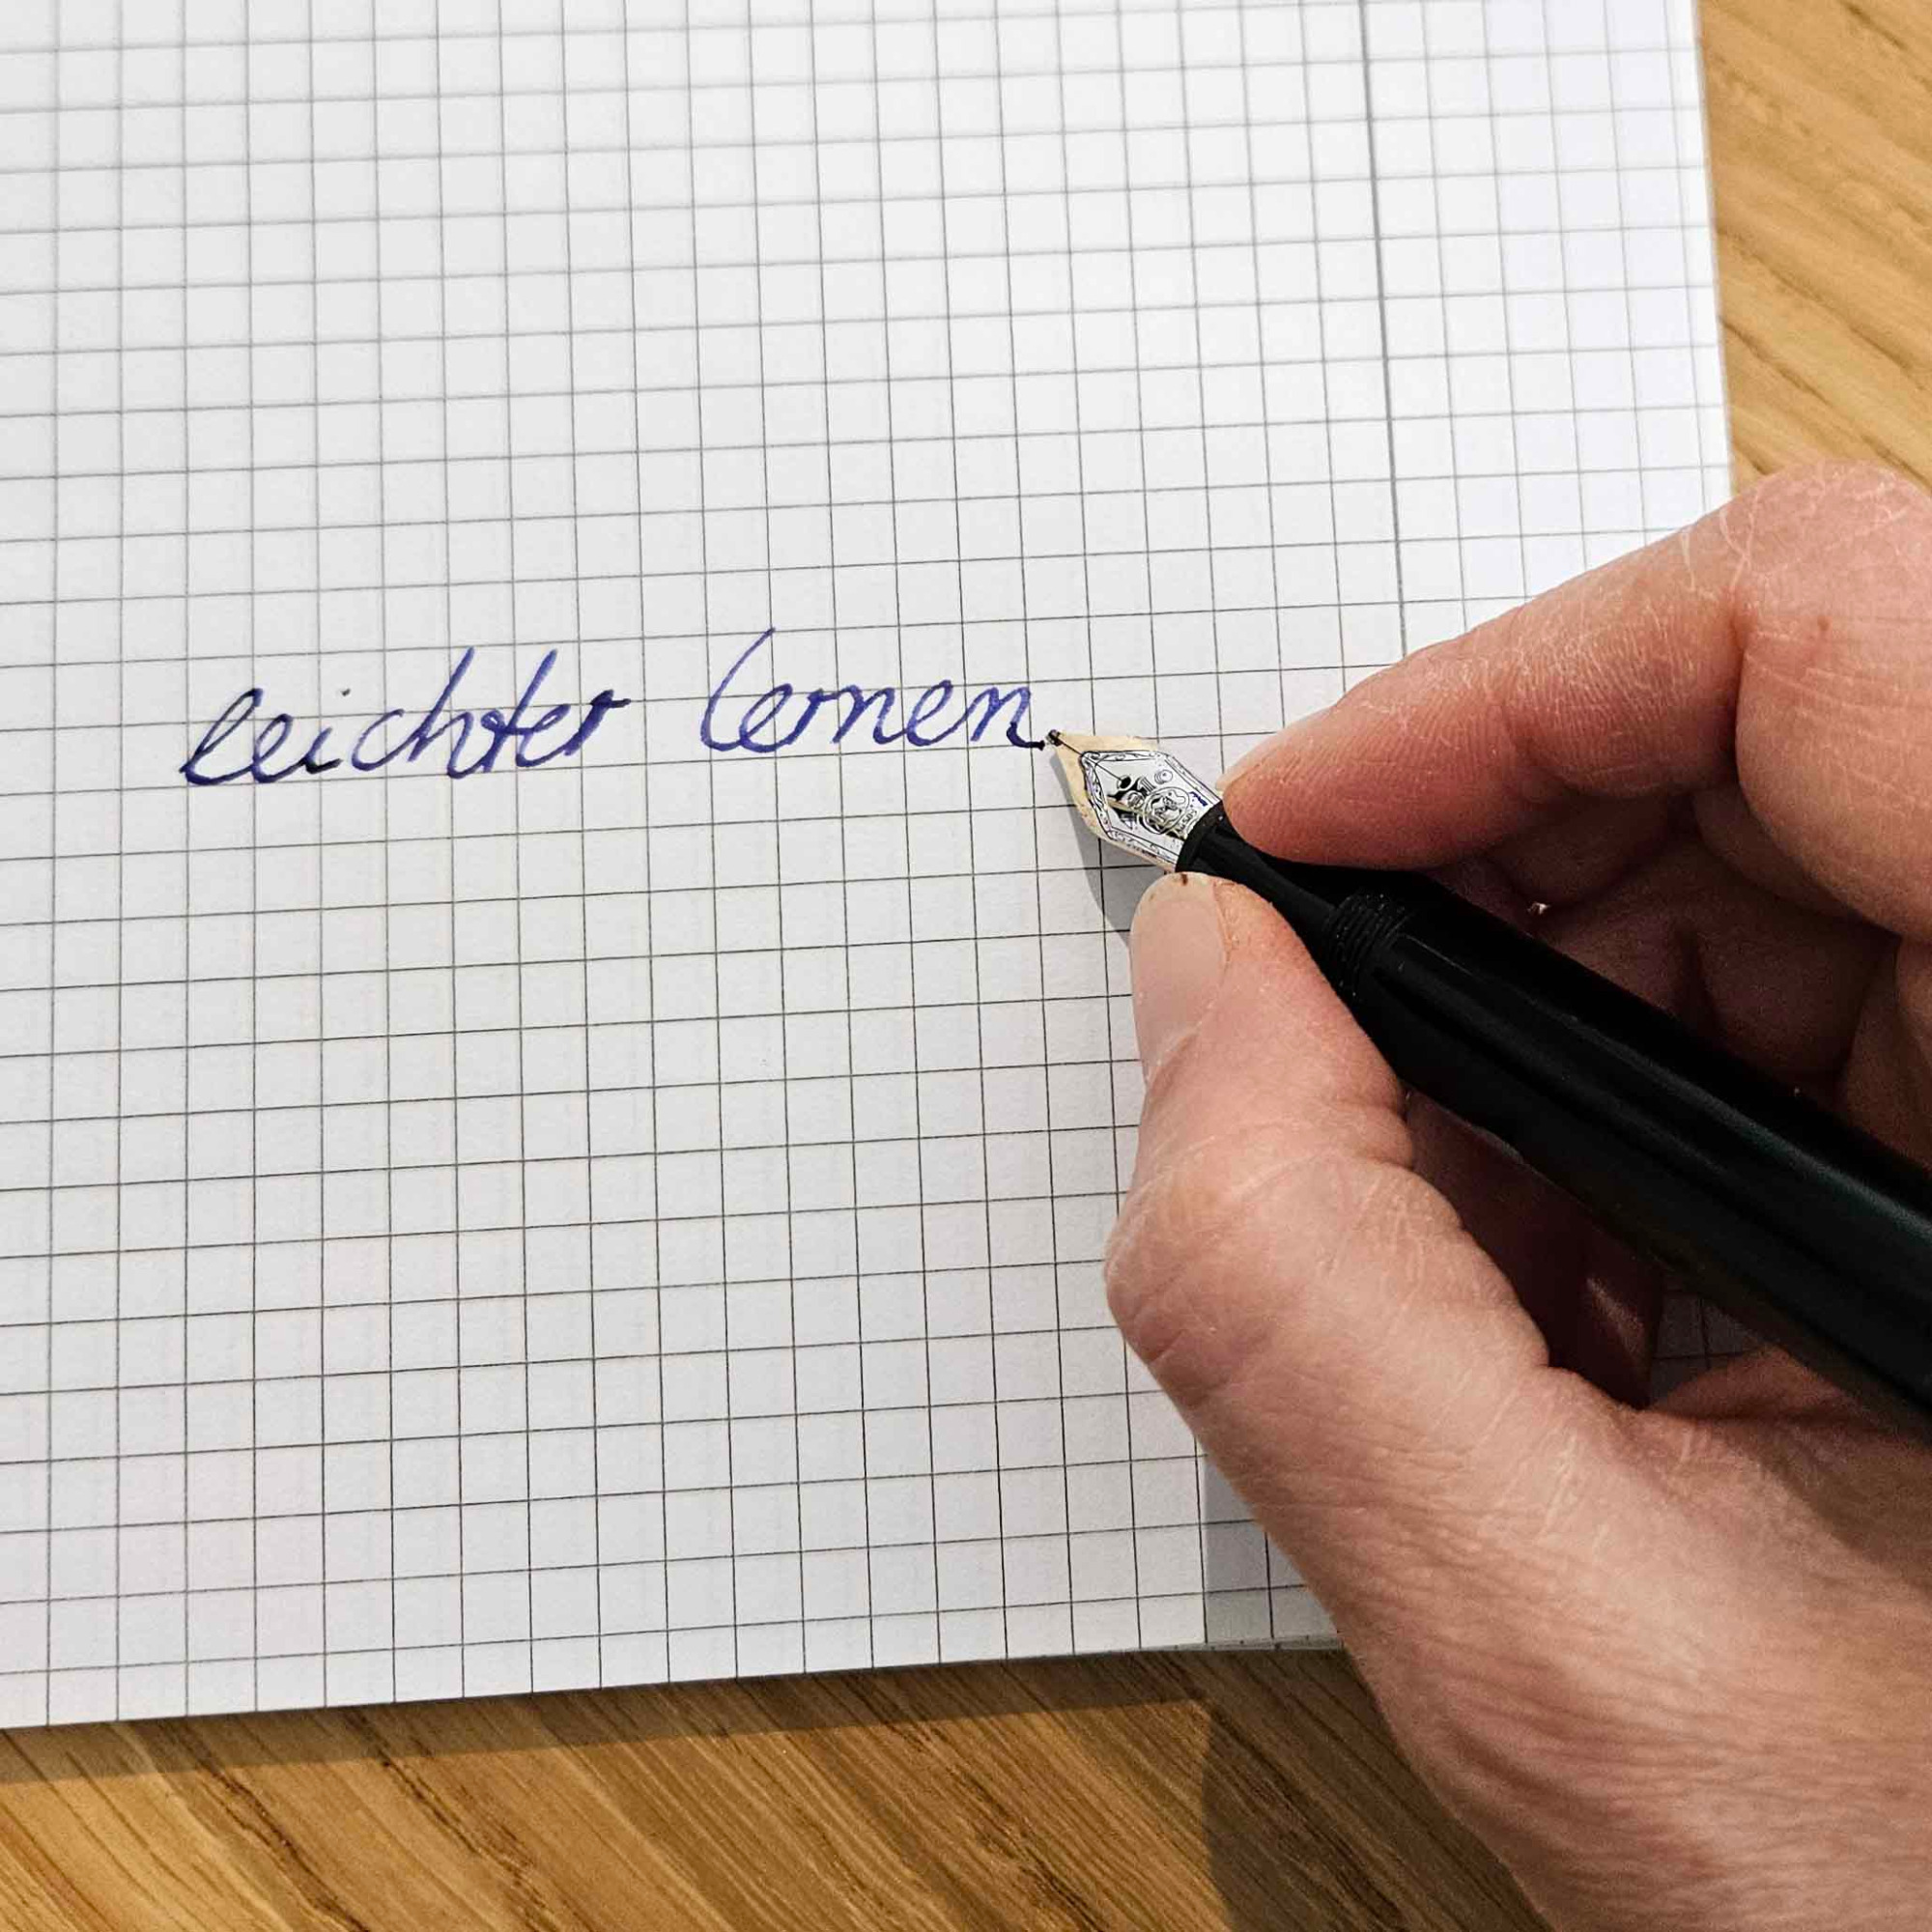 leichter lernen